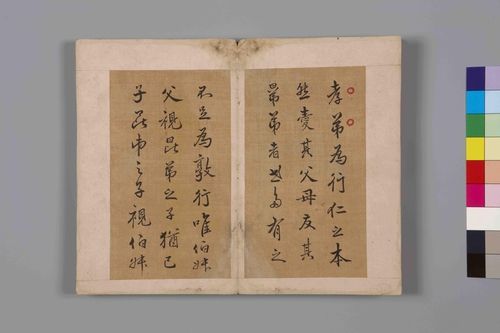 孝弟為行仁之本
然愛其父母友其
昆弟者世多有之
不足為敦行唯伯叔
父視昆弟之子猶己
子昆弟之子視伯叔